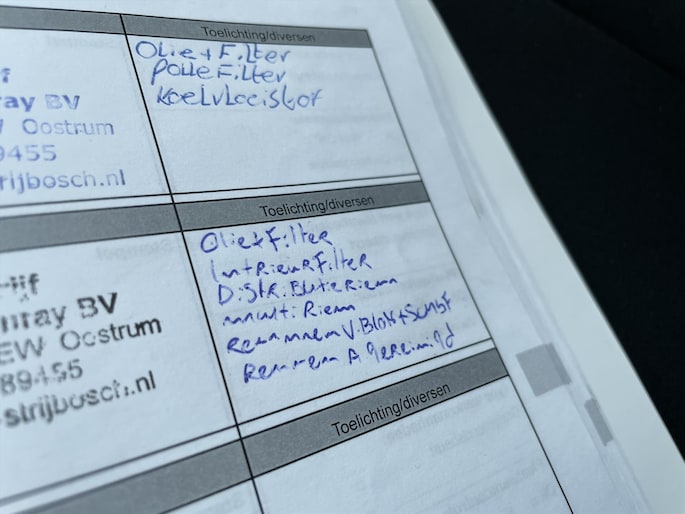 Toelichting/diversen
Olie + Filter
Pollefilter
Koelvloeistof
ray BV
Oostrum
9455
rijbosch.nl
Toelichting/diversen
Olie + Filter
IntRieuRFilter
DiStRiButieRiem
multiRiem
Remmem V. Blok + Schijf
Remmem A gereinigd
rijf
nray BV
EW Oostrum
89455
strijbosch.nl
Toelichting/diversen